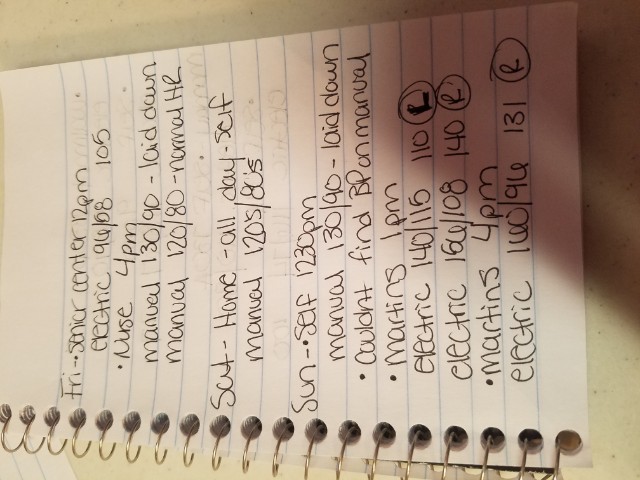 Fri - • senior center 12pm
electric 94/68 105
• Nurse 4pm
manual 130/90 - laid down
manual 120/80 - normal HR
Sat - Home - all day - self
manual 120s/80's
Sun - • Self 1230pm
manual 130/90 - laid down
• couldnt find BP on manual
• martins 1pm
electric 140/115 110 R
electric 156/108 140 R
• martins 4pm
electric 140/94 131 R